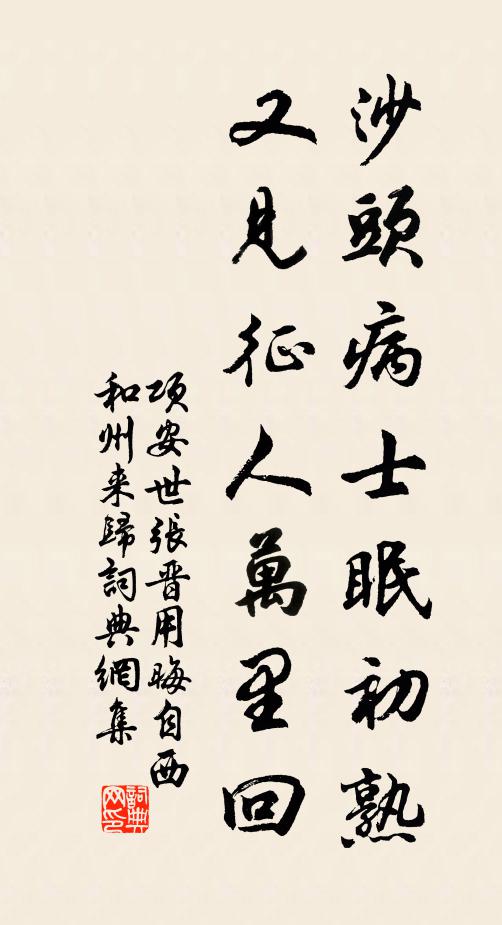 沙頭病士眠初熟
又見征人萬里回
項安世張晋用晦自西
和州来歸詞典網集
詞典
网印